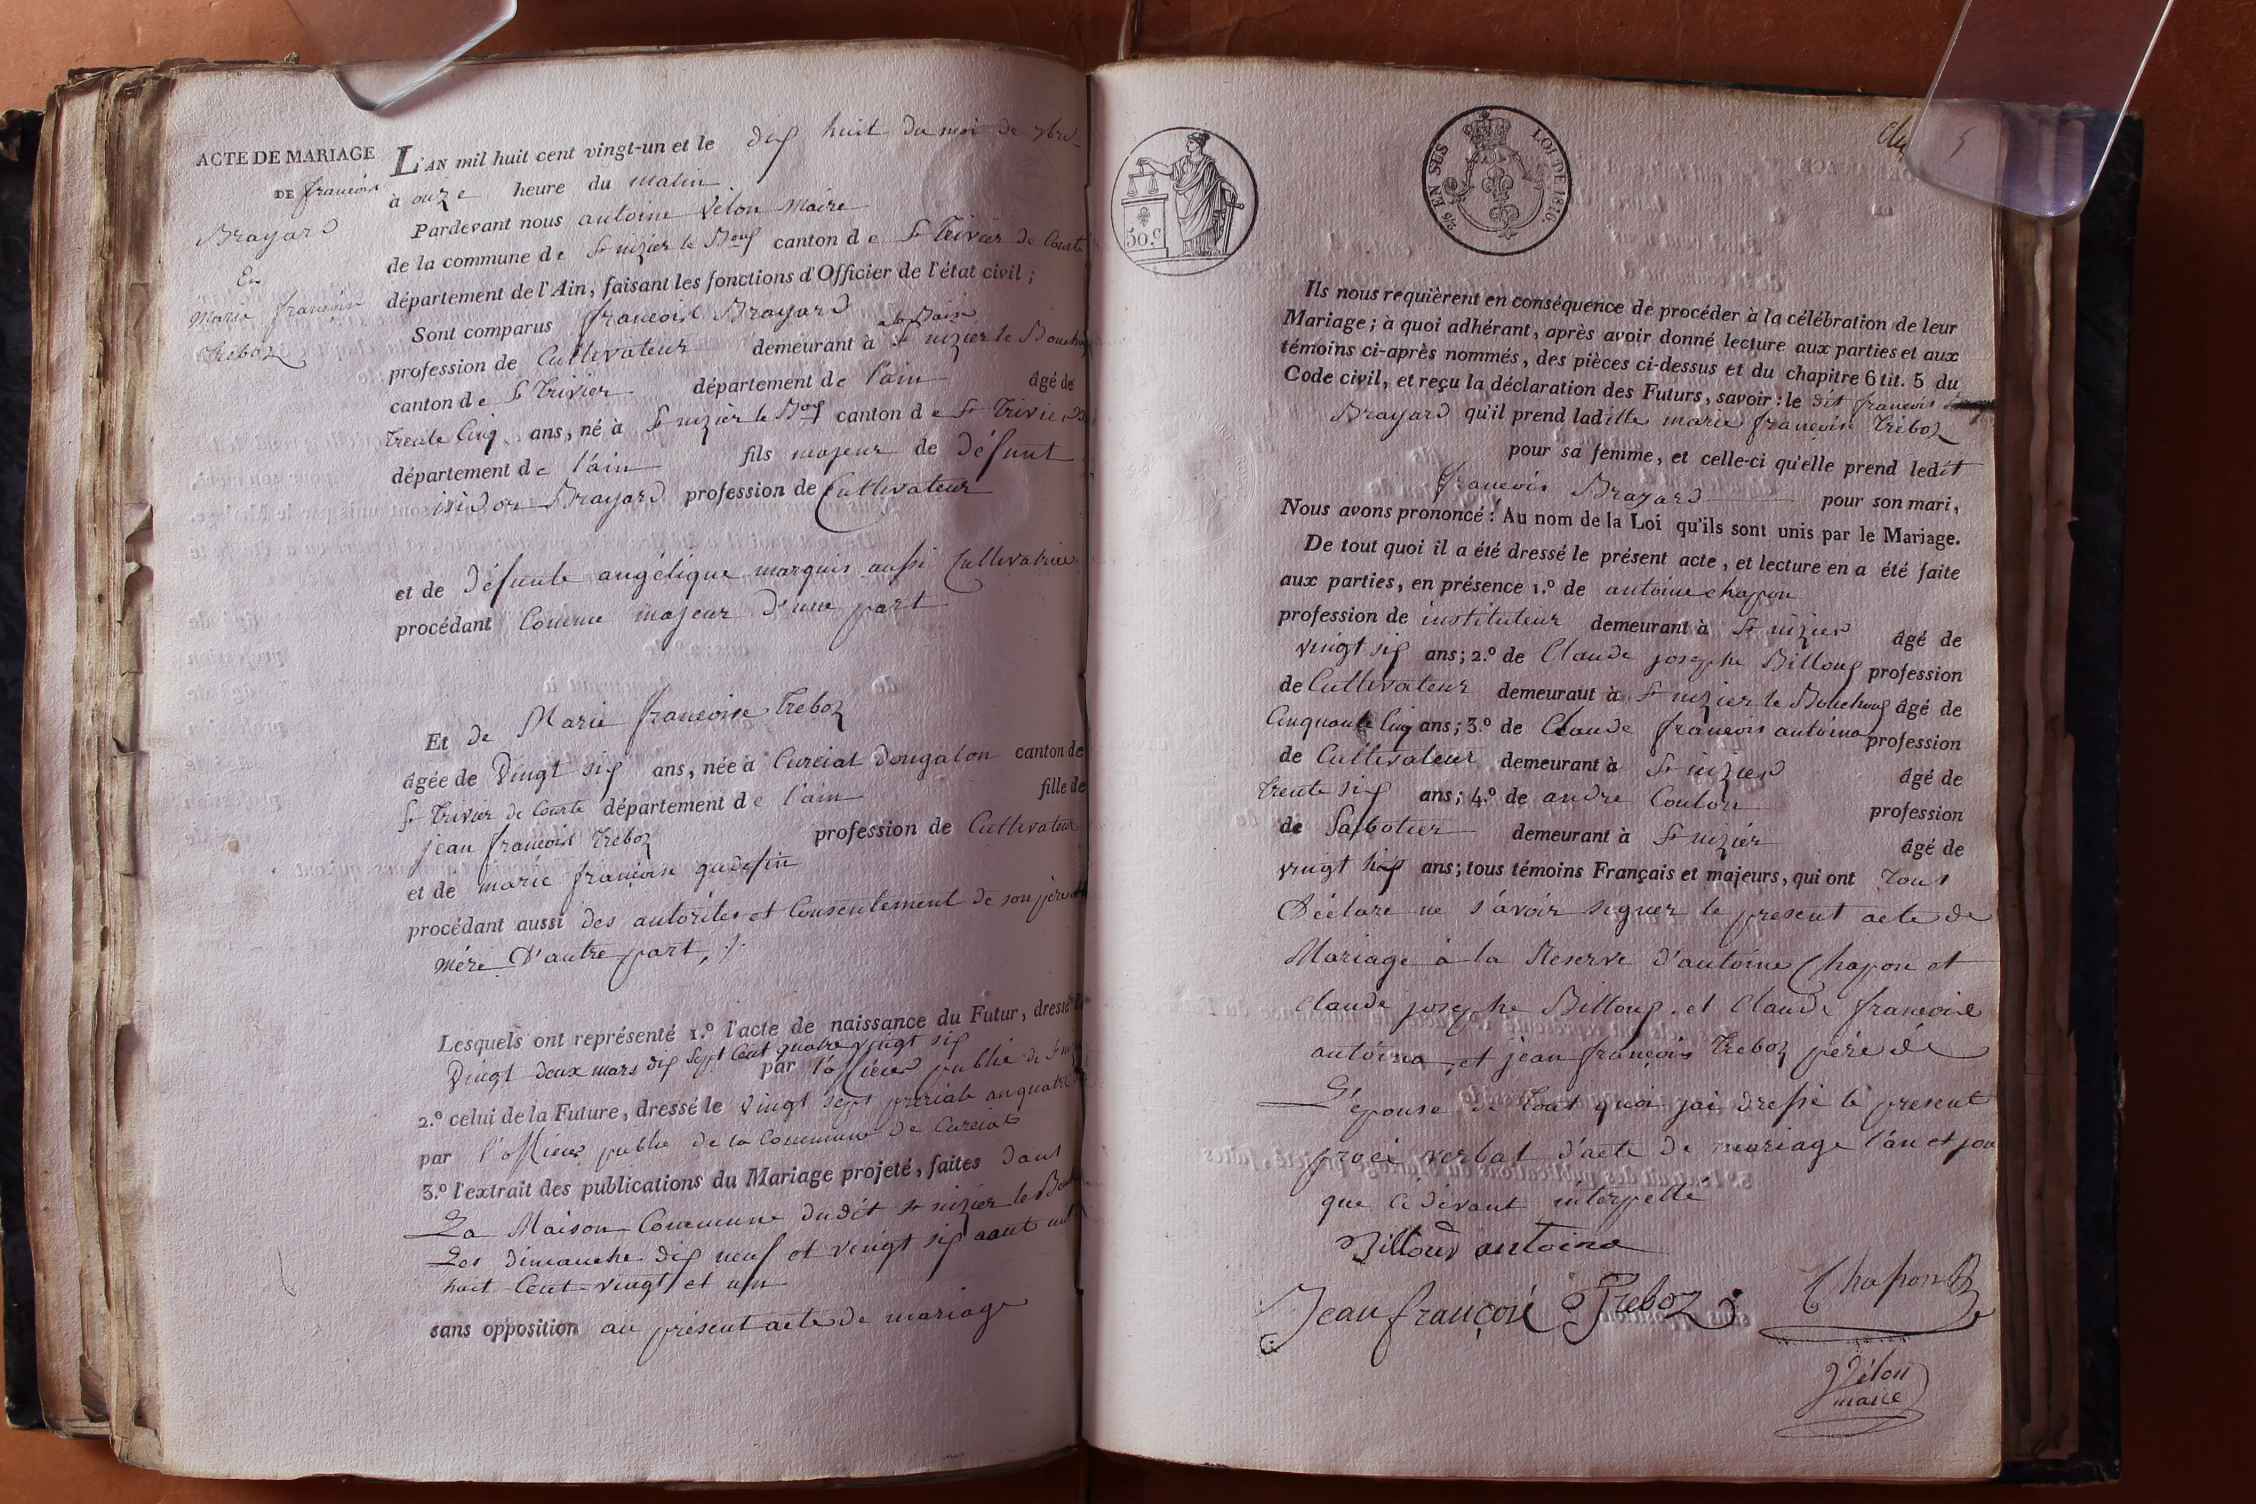 ACTE DE MARIAGE
DE francois
Brayard
Et
Marie françoise
Treboz
L'AN mil huit cent vingt-un et le dix huit du moi de 7bre
à onze heure du matin
Pardevant nous antoine Vélon Maire
de la commune de St nizier le Boux canton de St Trivier de Courte
département de l'Ain, faisant les fonctions d'Officier de l'état civil;
Sont comparus francoist Brayard
profession de Cultivateur demeurant à St nizier le Bouchoux
canton de St Trivier département de l'ain âgé de
trente Cinq ans, né à St nizier le Boux canton de St Trivier
département de l'ain fils majeur de défunt
isidore Brayard profession de Cultivateur
et de défunte angélique marquis aussi Cultivatrice
procédant Comme majeur d'une part
Et de Marie francoise Treboz
âgée de Vingt six ans, née à Curciat dongalon canton de
St Trivier de Courte département de l'ain fille de
jean francoist Treboz profession de Cultivateur
et de marie françoise
procédant aussi des autorités et Consentement de son père et
mére D'autre part ./.
Lesquels ont représenté 1.º l'acte de naissance du Futur, dressé le
Vingt deux mars dix Sept Cent quatre vingt six
par l'officier publié de St
2.º celui de la Future, dressé le vingt sept preriale an quatre
par l'officier publie de la Commune de Curciat
3.º l'extrait des publications du Mariage projeté, faites dans
La Maison Commune dudit St nizier le
Les dimanche dix neuf et vingt six aout mil
huit Cent vingt et un
sans opposition au présent acte de mariage
50.c
2/10 EN SUS
LOI DE 1816.
Ils nous requièrent en conséquence de procéder à la célébration de leur
Mariage; à quoi adhérant, après avoir donné lecture aux parties et aux
témoins ci-après nommés, des pièces ci-dessus et du chapitre 6 tit. 5 du
Code civil, et reçu la déclaration des Futurs, savoir: le dit francois
Brayard qu'il prend ladite marie françoise Treboz
pour sa femme, et celle-ci qu'elle prend ledit
francois Brayard pour son mari,
Nous avons prononcé: Au nom de la Loi qu'ils sont unis par le Mariage.
De tout quoi il a été dressé le présent acte, et lecture en a été faite
aux parties, en présence 1.º de antoine chapon
profession de instituteur demeurant à St nizier âgé de
vingt six ans; 2.º de Claude josephe Billoux profession
de Cultivateur demeurant à St nizier le Bouchoux âgé de
Cinquante Cinq ans; 3.º de Claude francois antoina profession
de Cultivateur demeurant à St nizier âgé de
trente six ans; 4.º de andre Coulon profession
de Sabotier demeurant à St nizier âgé de
vingt six ans; tous témoins Français et majeurs, qui ont tous
Déclare ne s'avoir signer le present acte de
Mariage à la Reserve d'antoine Chapon et
Claude josephe Billoux et Claude francoist
antoina, et jean françois Treboz pére de
L'epouse de tout quoi jai dressé le present
procé verbal d'acte de mariage l'an et jour
que cidevant interpellé
Billoux antoina
Chapon
Jean françoi Treboz
Vélon
maire